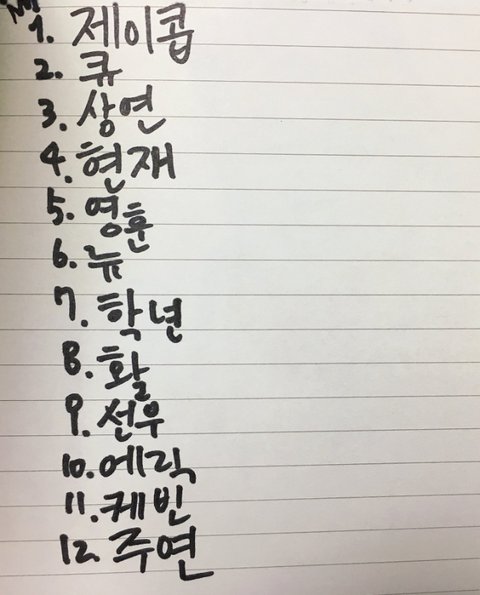 1. 제이콥
2. 큐
3. 상연
4. 현재
5. 영훈
6. 뉴
7. 학년
8. 활
9. 선우
10. 에릭
11. 케빈
12. 주연